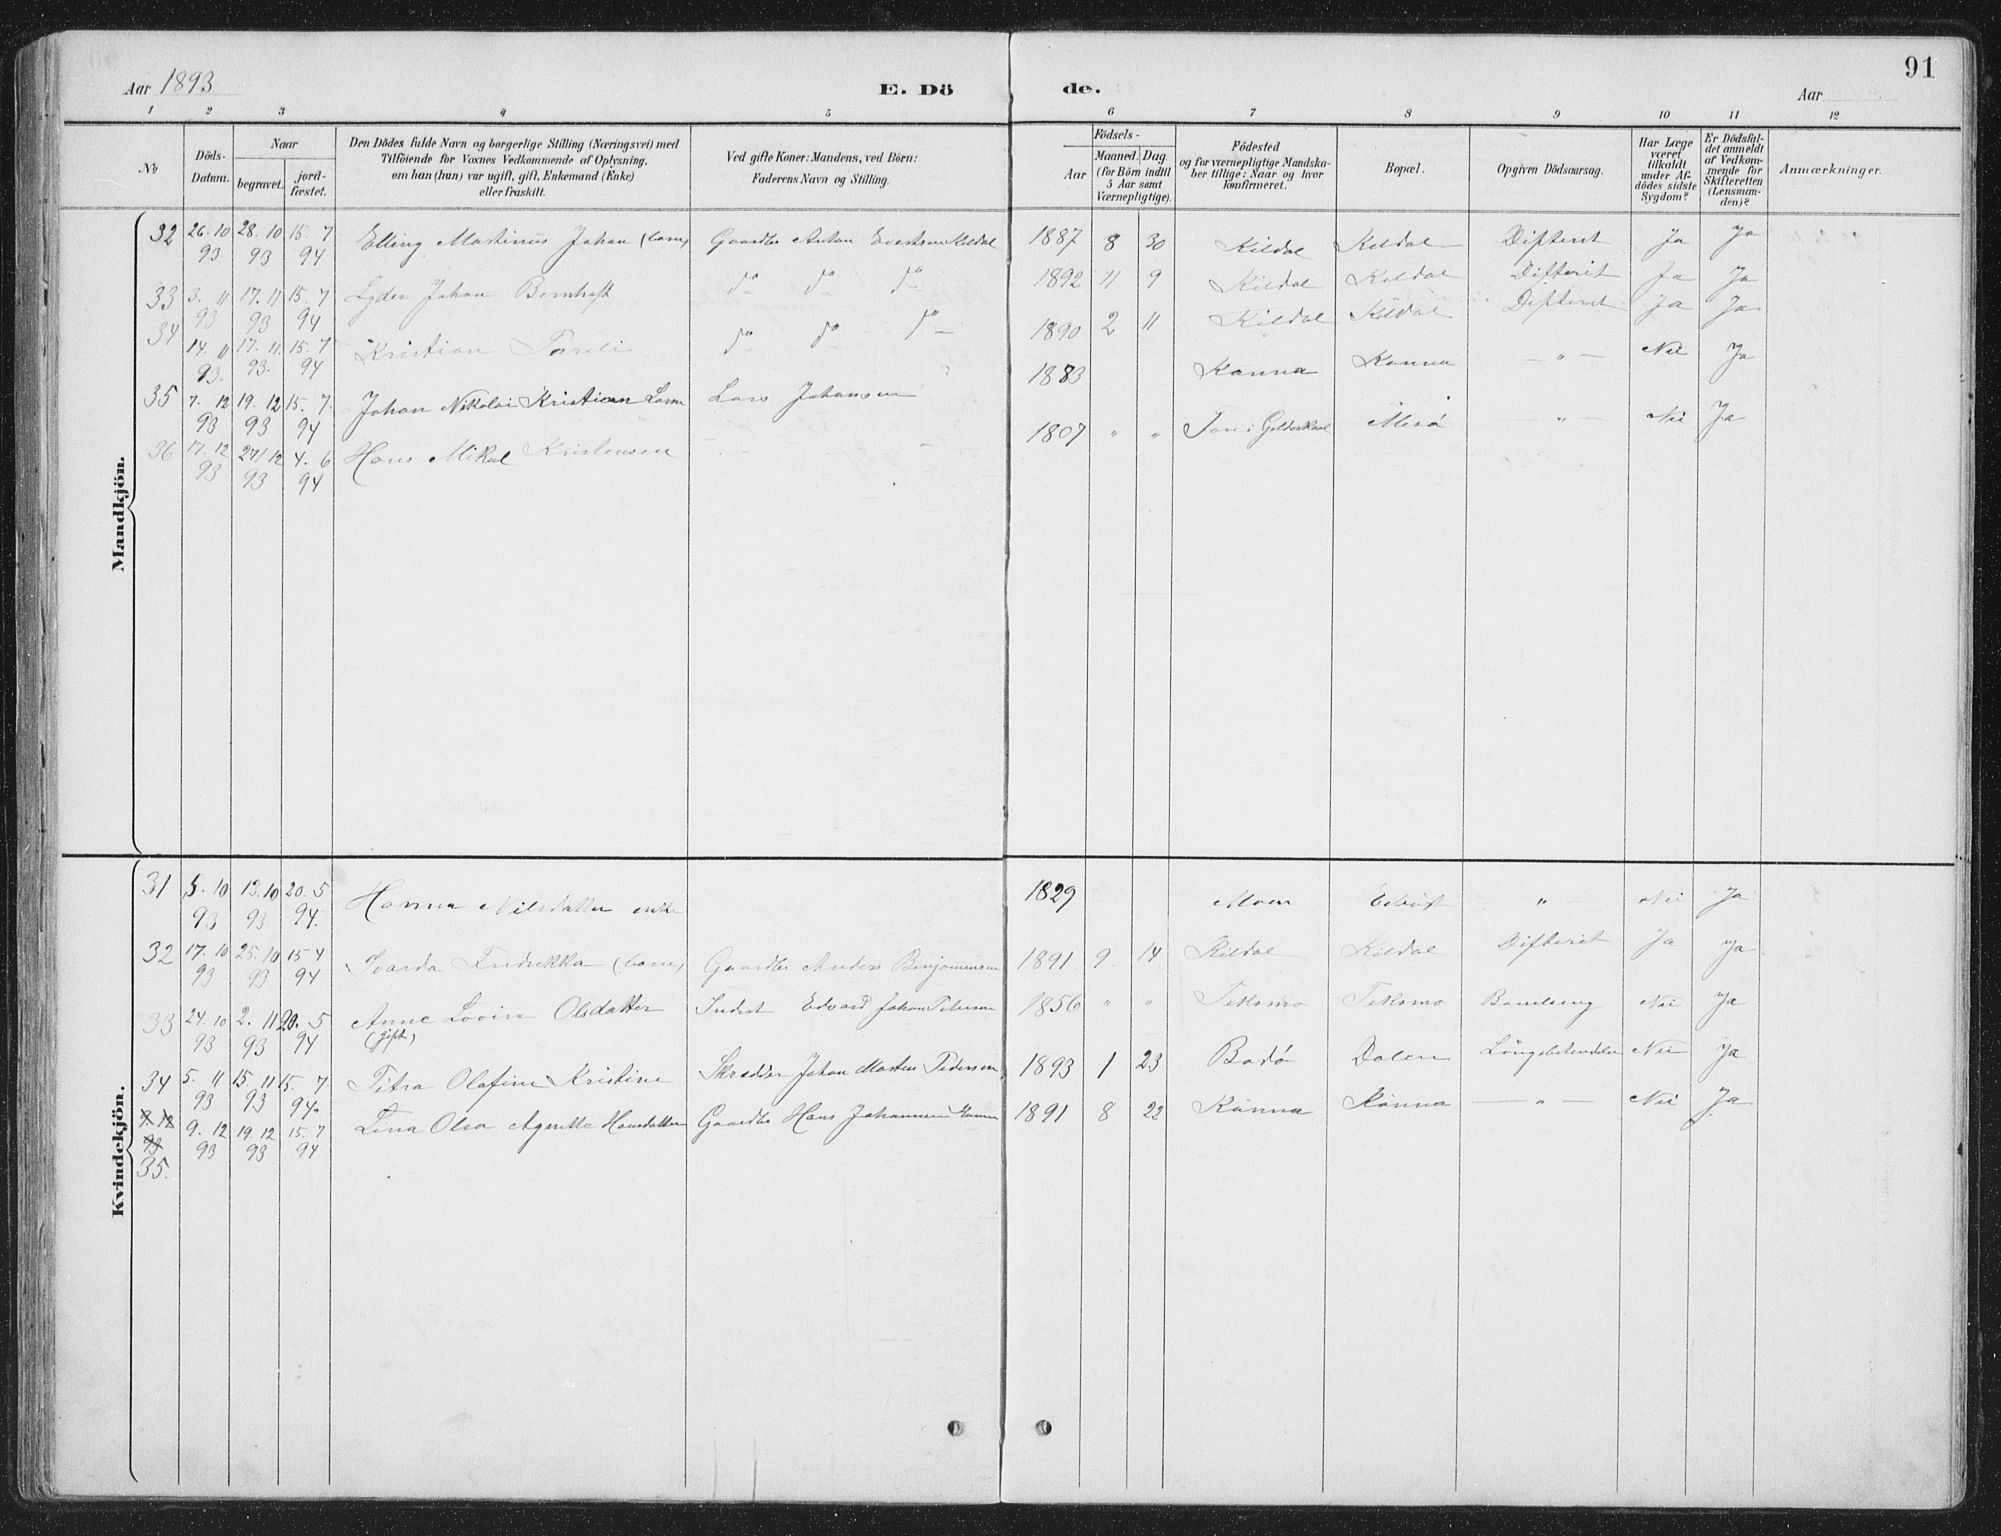 Aar 1893
E. Dö
de.
91
Aar
1 2 3 4 5 6 7 8 9 10 11 12
No
Döds-Datum.
Naar
begravet.
jord-fæstet.
Den Dödes fulde Navn og borgerlige Stilling (Næringsvei) med
Tilföiende for Voxnes Vedkommende af Oplysning,
om han (hun) var ugift, gift, Enkemand (Enke)
eller fraskilt.
Ved gifte Koner: Mandens, ved Börn:
Faderens Navn og Stilling.
Födsels-
Aar
Maaned. Dag.
(for Börn indtil
5 Aar samt
Værnepligtige).
Födested
og for værnepligtige Mandska-
ber tillige: Naar og hvor
konfirmeret.
Bopæl.
Opgiven Dödsaarsag.
Har Læge
været
tilkaldt
under Af-
dödes sidste
Sygdom?
Er Dödsfal-
det anmeldt
af Vedkom-
mende for
Skifteretten
(Lensman-
den)?
Anmærkninger.
Mandkjön.
32 26.10 93 28.10 93 15.7 94 Elling Martinus Johan (barn) Gaardbr Anton Evertsen Kildal 1887 8 30 Kildal Kildal Difterit Ja Ja
33 3.11 93 17.11 93 15.7 94 Lyder Johan Bernhoft do do do 1892 11 9 Kildal Kildal Difterit Ja Ja
34 14.11 93. 17.11 93. 15.7 94 Kristian Toreli do do do 1890 2 11 Kildal Kildal Difterit Ja Ja
35 7.12 93 19.12 93 15.7. 94 Johan Nikolai Kristian Larsen Lars Johansen 1883 Kanna Kanna — " — Nei Ja
36 17.12 93 27/12 93 4.6 94 Hans Mikal Kristensen 1807 " " Tore i Gildeskaal Mesö " Nei Ja
Kvindekjön.
31 5.10 93 13.10 93 20.5 94. Hanna Nilsdatter enke 1829 Moen " Nei Ja
32 17.10 93 25.10 93 15 4 94 Fredrikka (barn) Gaardbr Anders Benjaminsen 1891 9 14 Kildal Kildal Difterit Ja Ja
33 24.10 93 2.11 93 20.5 94 Anne Lovise Olsdatter (gift) Inderst Edvard Johan Petersen 1856 " " Teksmo Teksmo Barselseng Nei Ja
34 5.11 93 15.11 93 15.7 94. Petra Olafine Kristine Skrædder Johan Morten Pedersen 1893 1 23 Bodö Dalen Lungebetendelse Nei Ja
9.12 93
35. 9.12 93 19.12 93 15.7 94 Lina Olea Agnette Hansdatter Gaardbr Hans Johannesen 1891 8 22 Kanna Kanna — " — Nei Ja